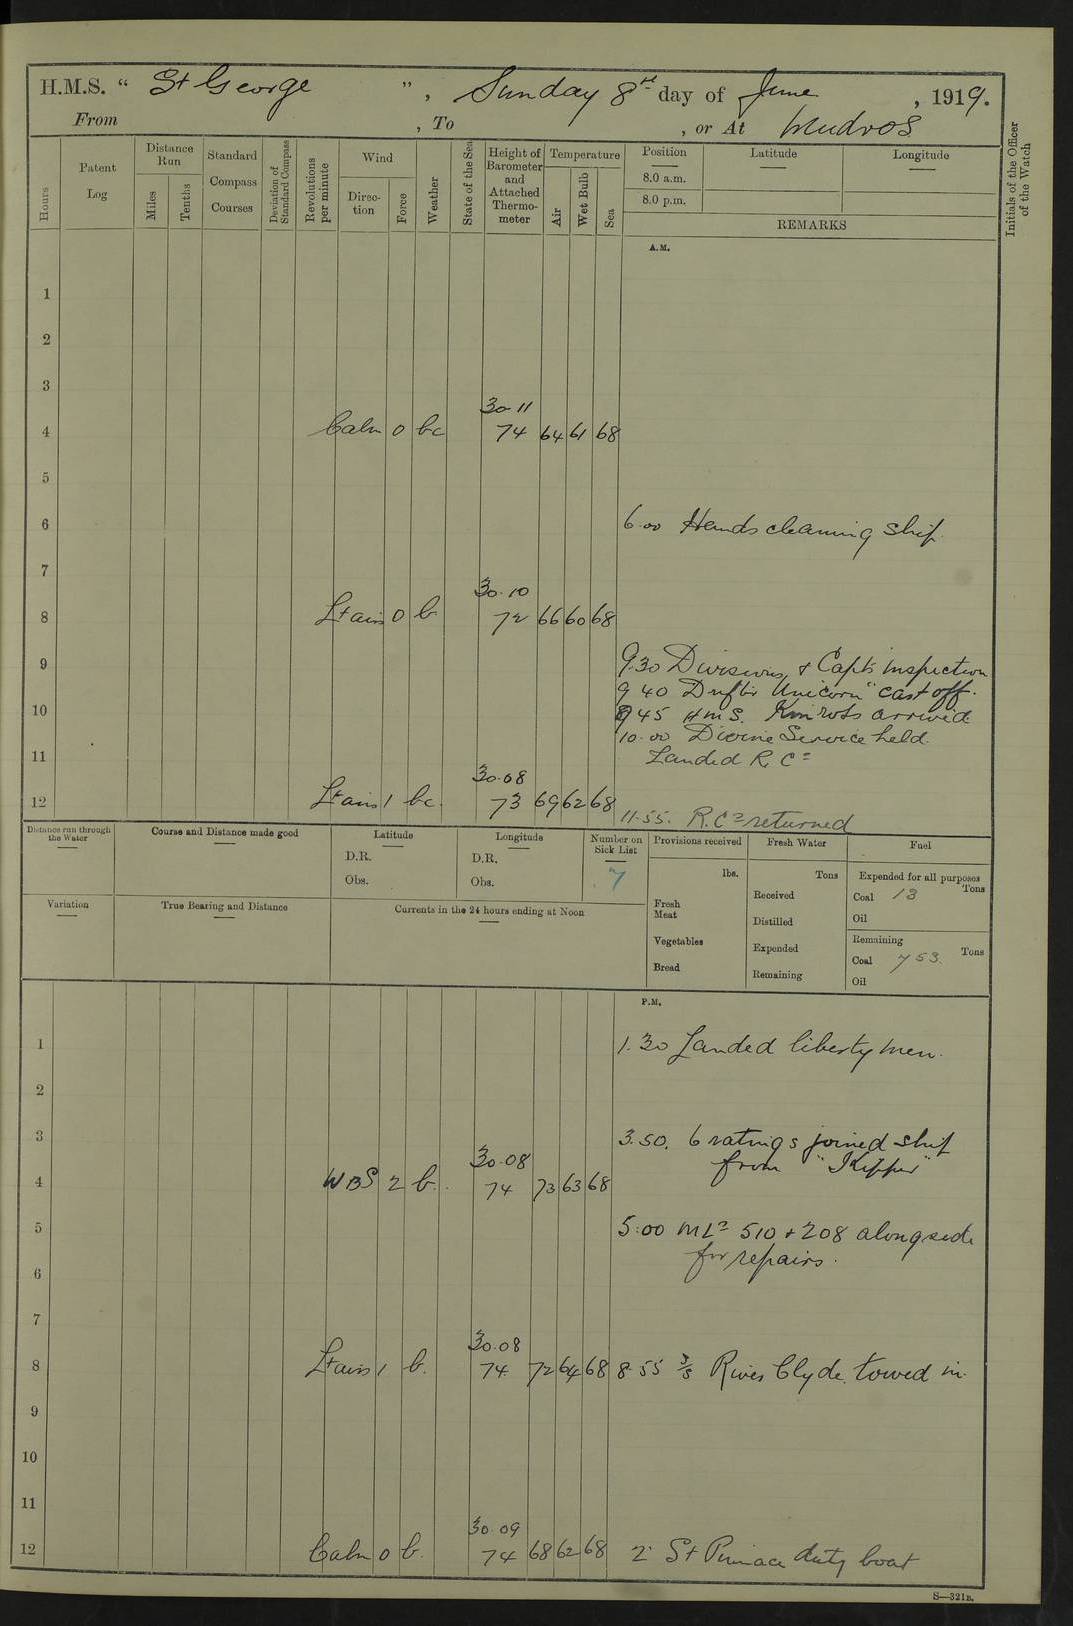 H.M.S. “ St George ” , Sunday 8th day of June , 1919.
From , To , or At Mudros
Hours
Patent Log
Distance Run
Miles
Tenths
Standard Compass Courses
Deviation of Standard Compass
Revolutions per minute
Wind
Direc-tion
Force
Weather
State of the Sea
Height of Barometer and Attached Thermo-meter
Temperature
Air
Wet Bulb
Sea
Position
8.0 a.m.
8.0 p.m.
Latitude
Longitude
REMARKS
Initials of the Officer of the Watch
A.M.
1
2
3
30.11
4 Calm 0 bc 74 64 61 68
5
6 6.00 Hands cleaning ship
7
30.10
8 Lt airs 0 b 72 66 60 68
9 9.30 Divisions & Capt's inspection
9 40 Drifter "Unicorn" cast off.
10 9 45 HMS. arrived
10.00 Divine Service held.
11 Landed R.Cs
30.08
12 Lt airs 1 bc. 73 69 62 68
11.55. R.Cs returned
Distance run through the Water
Course and Distance made good
Latitude
D.R.
Obs.
Longitude
D.R.
Obs.
Number on Sick List
7
Provisions received
lbs.
Fresh Meat
Vegetables
Bread
Fresh Water
Tons
Received
Distilled
Expended
Remaining
Fuel
Expended for all purposes
Tons
Coal 13
Oil
Remaining
Tons
Coal 753.
Oil
Variation
True Bearing and Distance
Currents in the 24 hours ending at Noon
P.M.
1 1.30 Landed liberty men.
2
3 3.50. 6 ratings joined ship
30.08 from "Kipper"
4 WBS 2 b. 74 73 63 68
5 5.00 MLs 510 & 208 alongside
for repairs.
6
7
30.08
8 Lt airs 1 b. 74. 72 64 68 8.55 S/S River Clyde towed in.
9
10
11
30.09
12 Calm 0 b. 74 68 62 68 2 St Pinnace duty boat
S—321B.